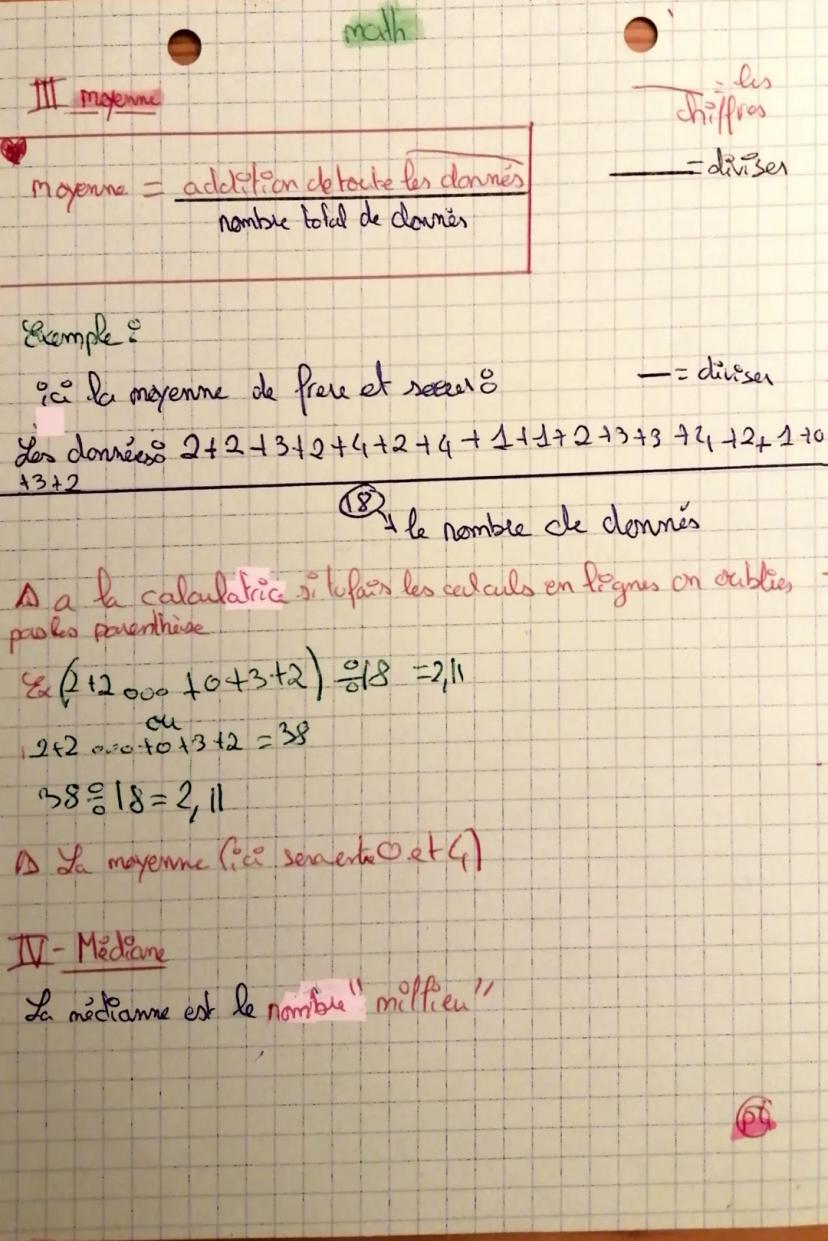 math
III moyenne
= les
chiffres
= diviser
moyenne = addition de toute les donnés
nombre total de donnés
Exemple :
ici la moyenne de frere et soeur :
— = diviser
Les données : 2+2+3+2+4+2+4+1+1+2+3+3+4+2+1+0
+3+2
18 → le nombre de donnés
⚠ a la calculatric si tu fais les calculs en lignes on oublies
pas les parenthèse
Ex (2+2 ... +0+3+2) ÷ 18 = 2,11
ou
2+2 ... +0+3+2 = 38
38 ÷ 18 = 2,11
⚠ La moyenne (ici sera entre 0 et 4)
IV - Médiane
La médianne est le nombre "millieu"